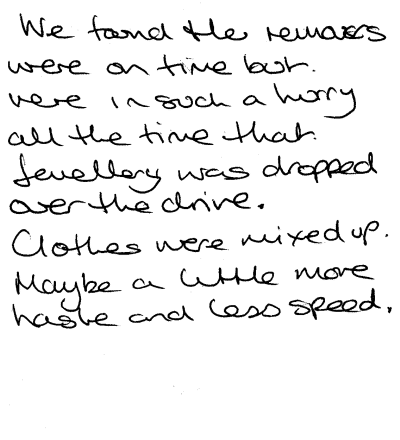 We found the removers
were on time but.
were in such a hurry
all the time that.
Jewellery was dropped
over the drive.
Clothes were mixed up.
Maybe a little more
haste and less speed.